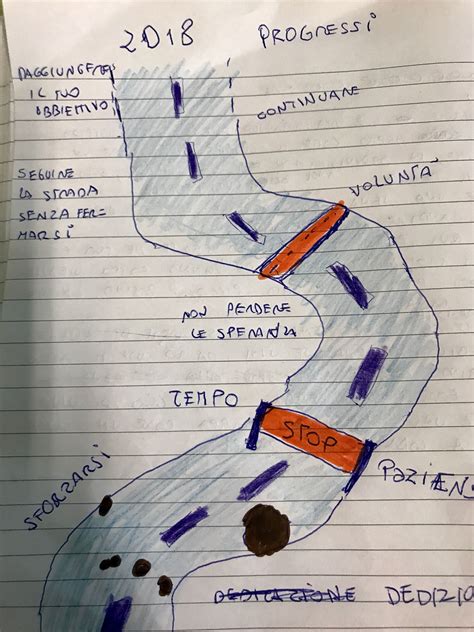 2018 PROGRESSI
RAGGIUNGERE
IL TUO
OBBIETTIVO
CONTINUARE
SEGUIRE
LA STRADA
SENZA FER=
MARSI
VOLUNTÀ
NON PERDERE
LE SPERANZA
TEMPO
STOP
PAZIEN
SFORZARSI
DEDICAZIONE DEDIZIO